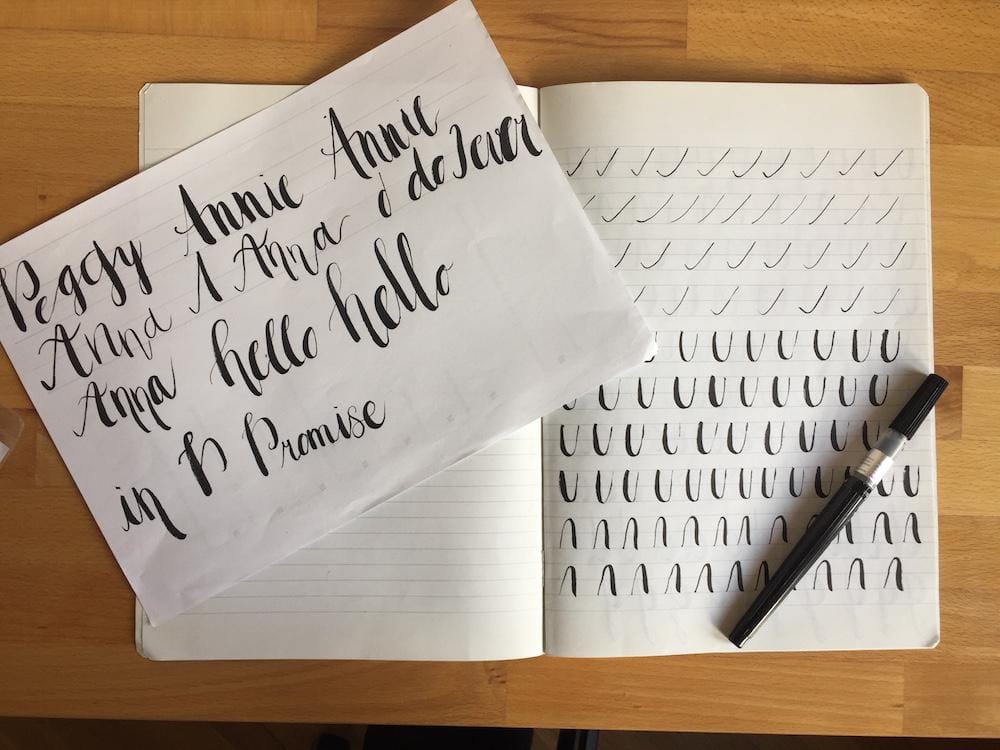 Annie
Peggy Annie
Anna A Anna
Anna hello hello
in P Promise